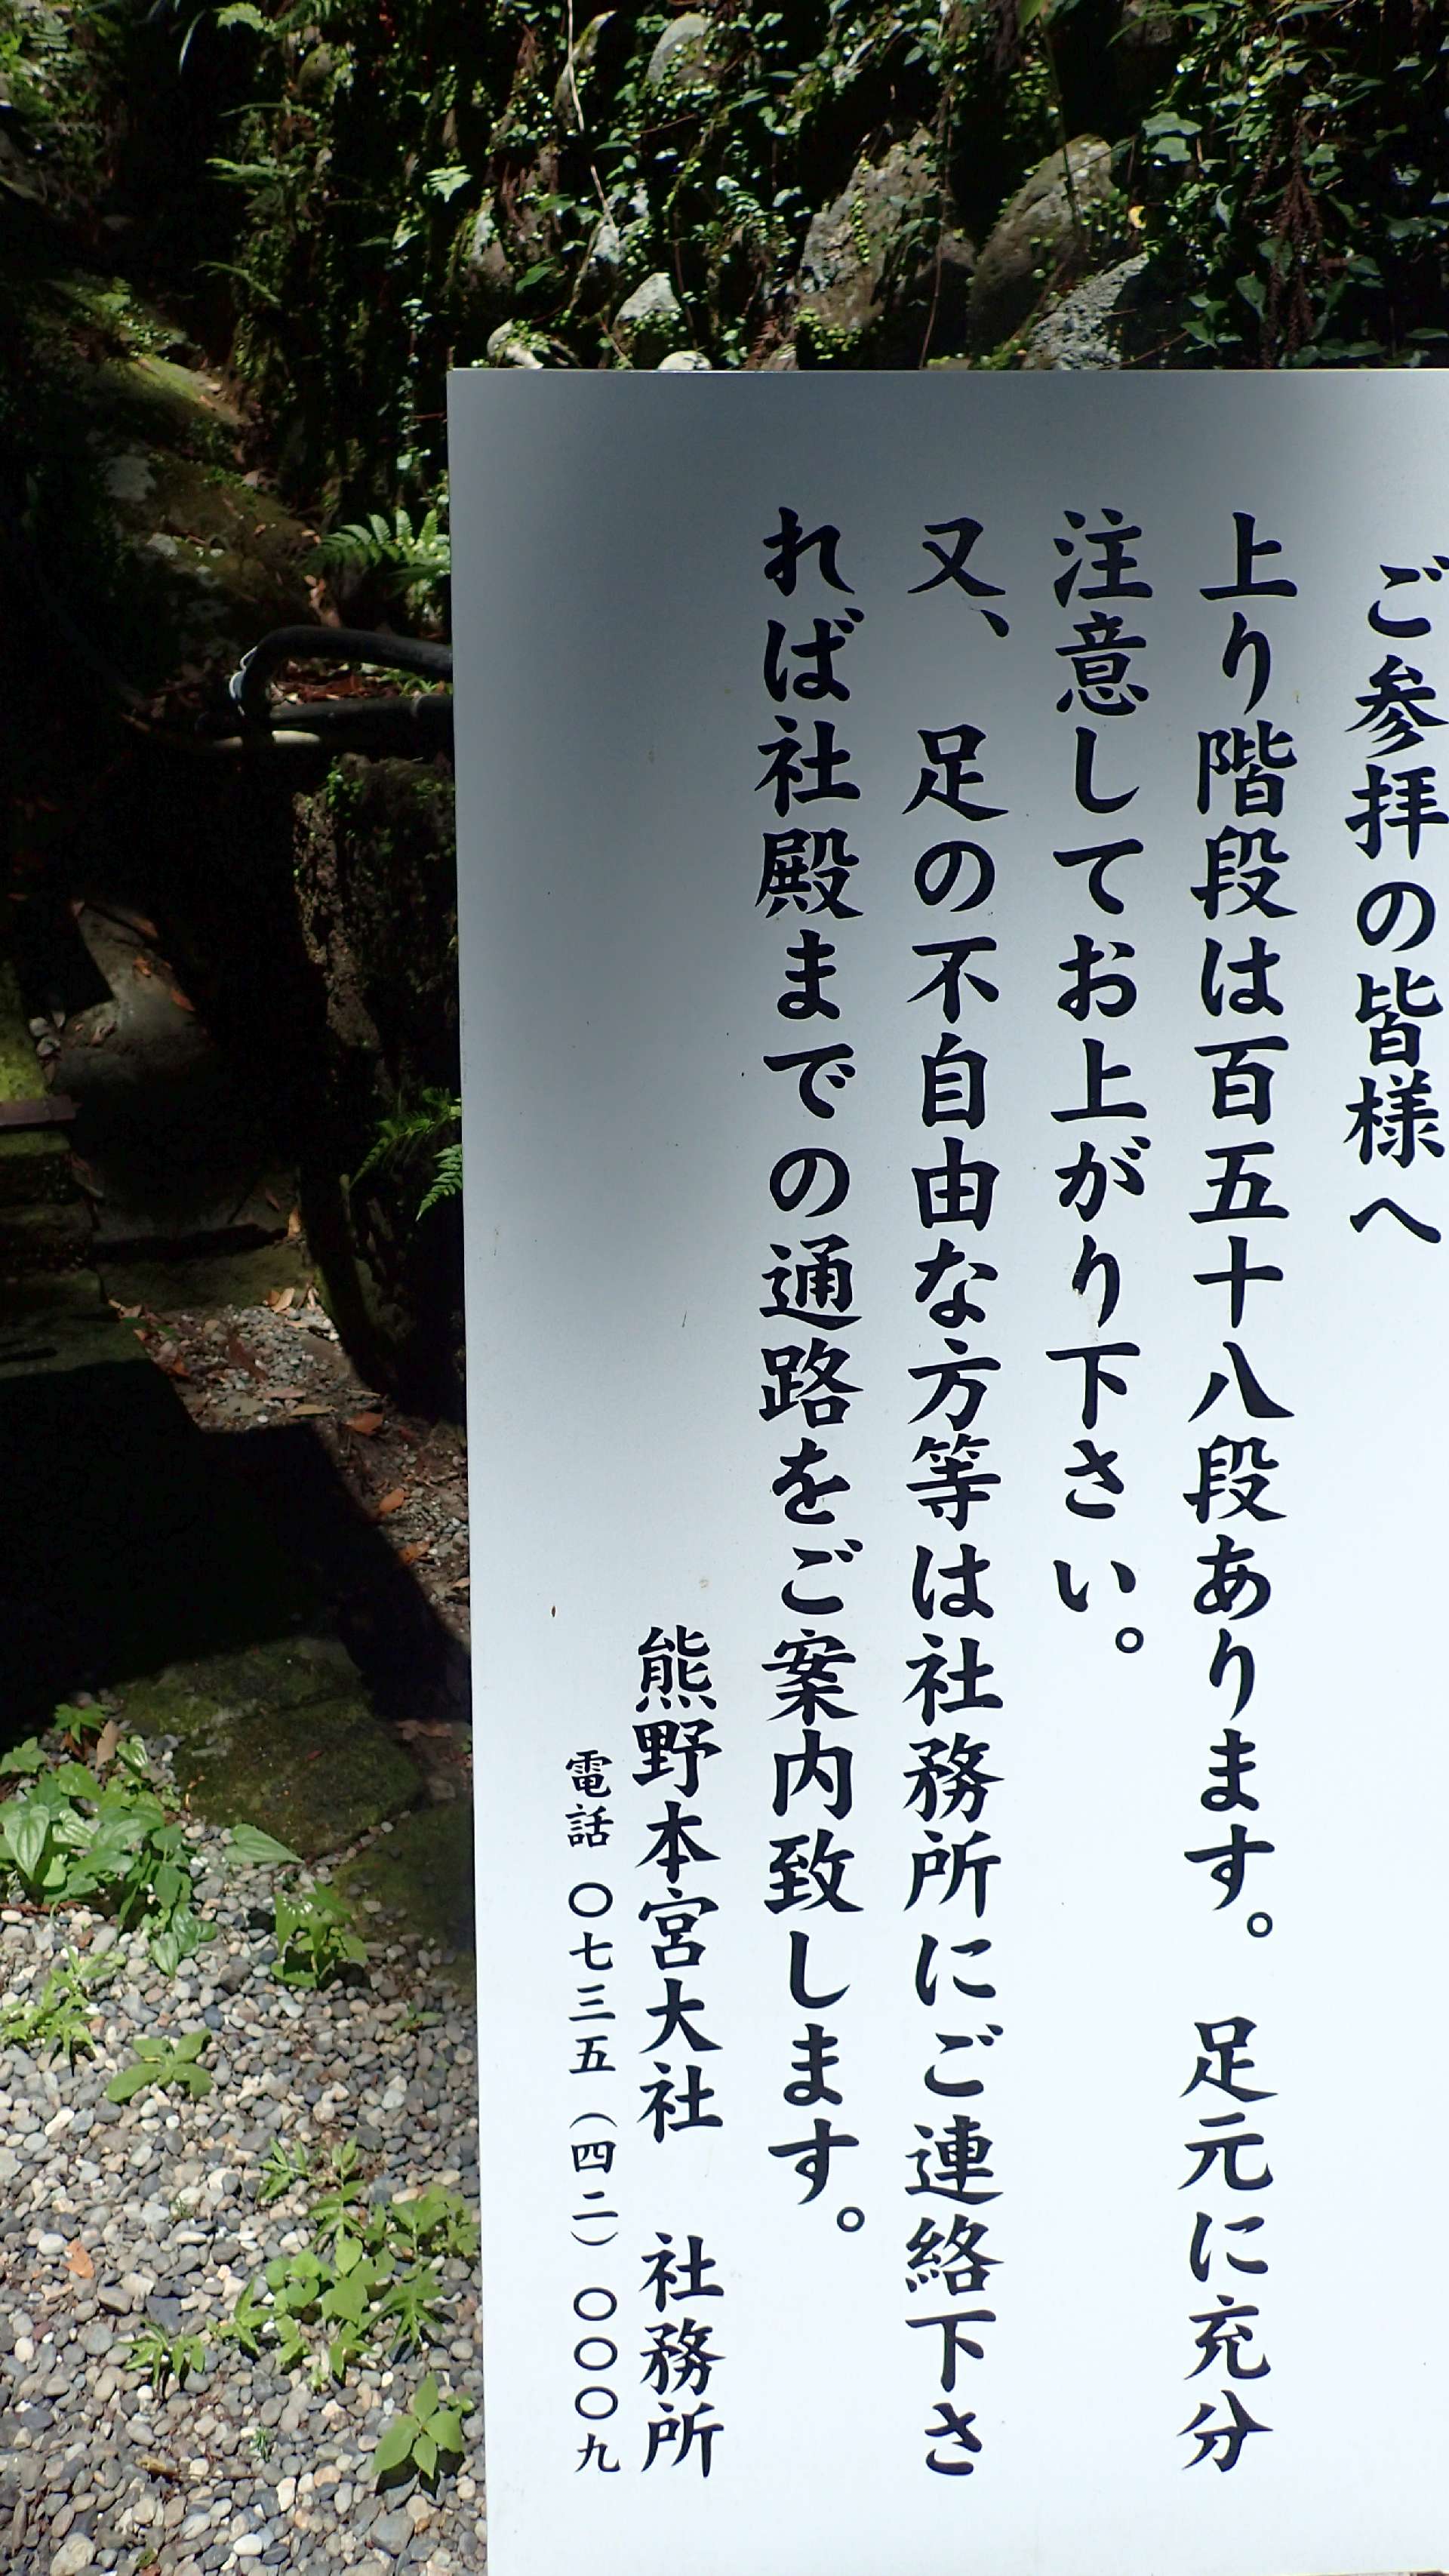 ご参拝の皆様へ
上り階段は百五十八段あります。 足元に充分
注意してお上がり下さい。
又、 足の不自由な方等は社務所にご連絡下さ
れば社殿までの通路をご案内致します。
熊野本宮大社 社務所
電話 〇七三五(四二)〇〇〇九